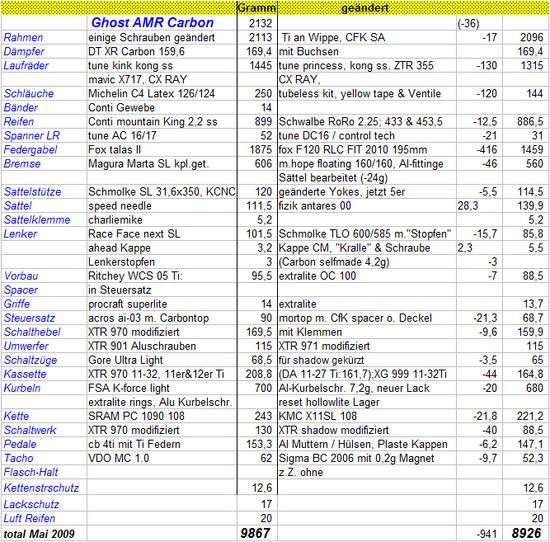 Gramm geändert
Ghost AMR Carbon 2132 (-36)
Rahmen einige Schrauben geändert 2113 Ti an Wippe, CFK SA -17 2096
Dämpfer DT XR Carbon 159,6 169,4 mit Buchsen 169,4
Laufräder tune kink kong ss 1445 tune princess, kong ss, ZTR 355 -130 1315
mavic X717, CX RAY CX RAY,
Schläuche Michelin C4 Latex 126/124 250 tubeless kit, yellow tape & Ventile -120 144
Bänder Conti Gewebe 14
Reifen Conti mountain King 2,2 ss 899 Schwalbe RoRo 2,25; 433 & 453,5 -12,5 886,5
Spanner LR tune AC 16/17 52 tune DC16 / control tech -21 31
Federgabel Fox talas II 1875 fox F120 RLC FIT 2010 195mm -416 1459
Bremse Magura Marta SL kpl.get. 606 m.hope floating 160/160, Al-fittinge -46 560
Sättel bearbeitet (-24g)
Sattelstütze Schmolke SL 31,6x350, KCNC 120 geänderte Yokes, jetzt 5er -5,5 114,5
Sattel speed needle 111,5 fizik antares 00 28,3 139,9
Sattelklemme charliemike 5,2 5,2
Lenker Race Face next SL 101,5 Schmolke TLO 600/585 m."Stopfen" -15,7 85,8
ahead Kappe 3,2 Kappe CM, "Kralle" & Schraube 2,3 5,5
Lenkerstopfen 3 (Carbon selfmade 4,2g) -3
Vorbau Ritchey WCS 05 Ti: 95,5 extralite OC 100 -7 88,5
Spacer in Steuersatz
Griffe procraft superlite 14 extralite 13,7
Steuersatz acros ai-03 m. Carbontop 90 mortop m. CfK spacer o. Deckel -21,3 68,7
Schalthebel XTR 970 modifiziert 169,5 mit Klemmen -9,6 159,9
Umwerfer XTR 901 Aluschrauben 115 XTR 971 modifiziert 115
Schaltzüge Gore Ultra Light 68,5 für shadow gekürzt -3,5 65
Kassette XTR 970 11-32, 11er&12er Ti 208,8 (DA 11-27 Ti:161,7);XG 999 11-32Ti -44 164,8
Kurbeln FSA K-force light 700 Al-Kurbelschr. 7,2g, neuer Lack -20 680
extralite rings, Alu Kurbelschr. reset hollowlite Lager
Kette SRAM PC 1090 108 243 KMC X11SL 108 -21,8 221,2
Schaltwerk XTR 970 modifiziert 130 XTR shadow modifiziert -40 88,5
Pedale cb 4ti mit Ti Federn 153,3 Al Muttern / Hülsen, Plaste Kappen -6,2 147,1
Tacho VDO MC 1.0 62 Sigma BC 2006 mit 0,2g Magnet -9,7 52,3
Flasch-Halt z.Z. ohne
Kettenstrschutz 12,6 12,6
Lackschutz 17 17
Luft Reifen 20 20
total Mai 2009 9867 -941 8926